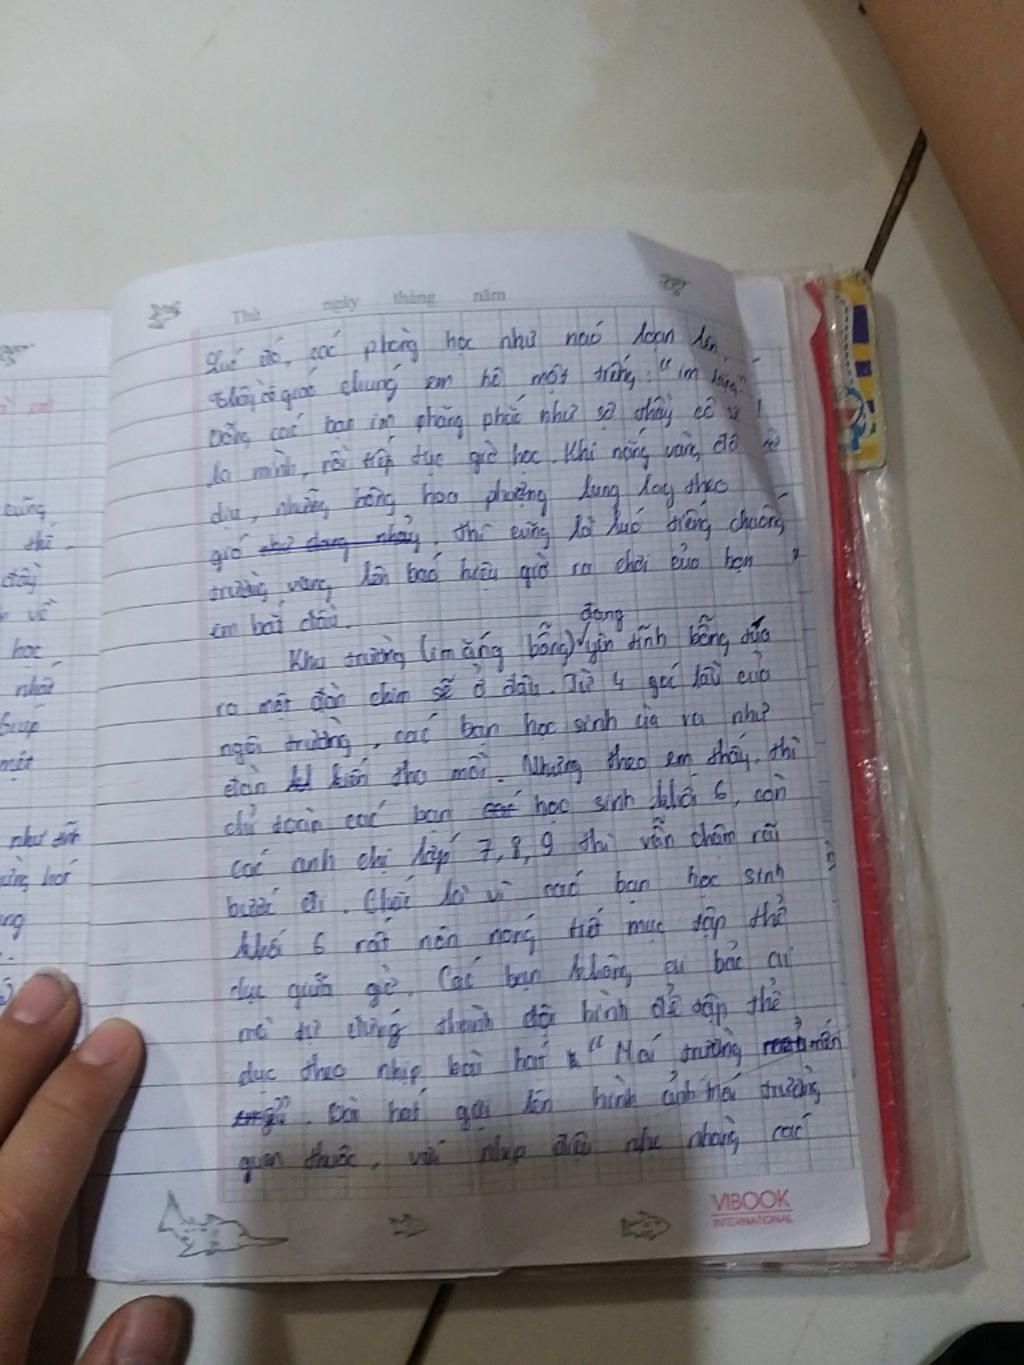 Thứ ngày tháng năm
đó, các phòng học như náo loạn lên
Thầy cô giáo chúng em hô một tiếng: "im lặng"
các bạn im phăng phắc như sợ thầy cô
la mình, rồi tiếp tục giờ học. Khi nắng vàng đã
dịu, những bông hoa phượng lung lay theo
gió như đang nhảy. thì cũng là lúc tiếng chuông
trường vang lên báo hiệu giờ ra chơi của bọn
em bắt đầu.
Khu trường (im ắng bỗng) đang yên tĩnh bỗng đưa
ra một đàn chim sẽ ở đâu. Từ 4 góc lầu của
ngôi trường, các bạn học sinh ùa ra như
đàn kiến tha mồi. Nhưng theo em thấy, thì
chỉ toàn các bạn các học sinh khối 6, còn
các anh chị lớp 7, 8, 9 thì vẫn chậm rãi
bước đi. Chắc là vì các bạn học sinh
khối 6 rất nôn nóng tiết mục tập thể
dục giữa giờ. Các bạn không ai bảo ai
mà tự chúng thành đội hình để tập thể
dục theo nhịp bài hát "Mái trường mến
". Bài hát gợi lên hình ảnh mái trường
quen thuộc, với nhịp điệu nhẹ nhàng các
cũng
thì
đầy
về
học
nhất
Giúp
một
như
ng
VIBOOK
INTERNATIONAL